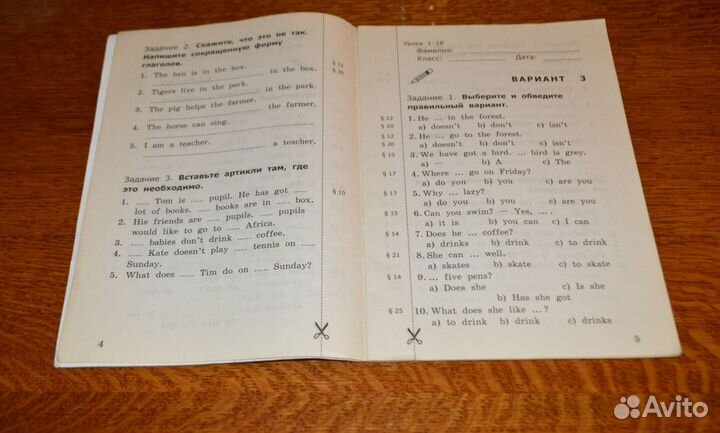 Задание 2. Скажите, что это не так.
Напишите сокращенную форму
глаголов.
1. The hen is in the box.
in the box.
2. Tigers live in the park.
in the park.
3. The pig helps the farmer.
the farmer.
4. The horse can sing.
5. I am a teacher.
a teacher.
§ 12
§ 20
Задание 3. Вставьте артикли там, где
это необходимо.
1. ...... Tom is ...... pupil. He has got ......
lot of books. ...... books are in ...... box.
2. His friends are ...... pupils. ...... pupils
would like to go to ...... Africa.
3. ...... babies don't drink ...... coffee.
4. ...... Kate doesn't play ...... tennis on ......
Sunday.
5. What does ...... Tim do on ...... Sunday?
§ 10
4
Уроки 1–18
Фамилия:
Класс: Дата:
ВАРИАНТ 3
Задание 1. Выберите и обведите
правильный вариант.
§ 12 1. He ... in the forest.
§ 20 a) doesn't b) don't c) isn't
§ 12 2. He ... go to the forest.
§ 20 a) doesn't b) don't c) isn't
§ 10 3. We have got a bird. ... bird is grey.
a) — b) A c) The
§ 17 4. Where ... go on Friday?
a) do you b) you c) are you
§ 17 5. Why ... lazy?
a) do you b) you c) are you
§ 15 6. Can you swim? — Yes, ... .
a) it is b) you can c) I can
§ 14 7. Does he ... coffee?
a) drinks b) drink c) to drink
§ 21 8. She can ... well.
a) skates b) skate c) to skate
§ 14 9. ... five pens?
a) Does she c) Is she
b) Has she got
§ 25 10. What does she like ... ?
a) to drink b) drink c) drinks
5
Avito